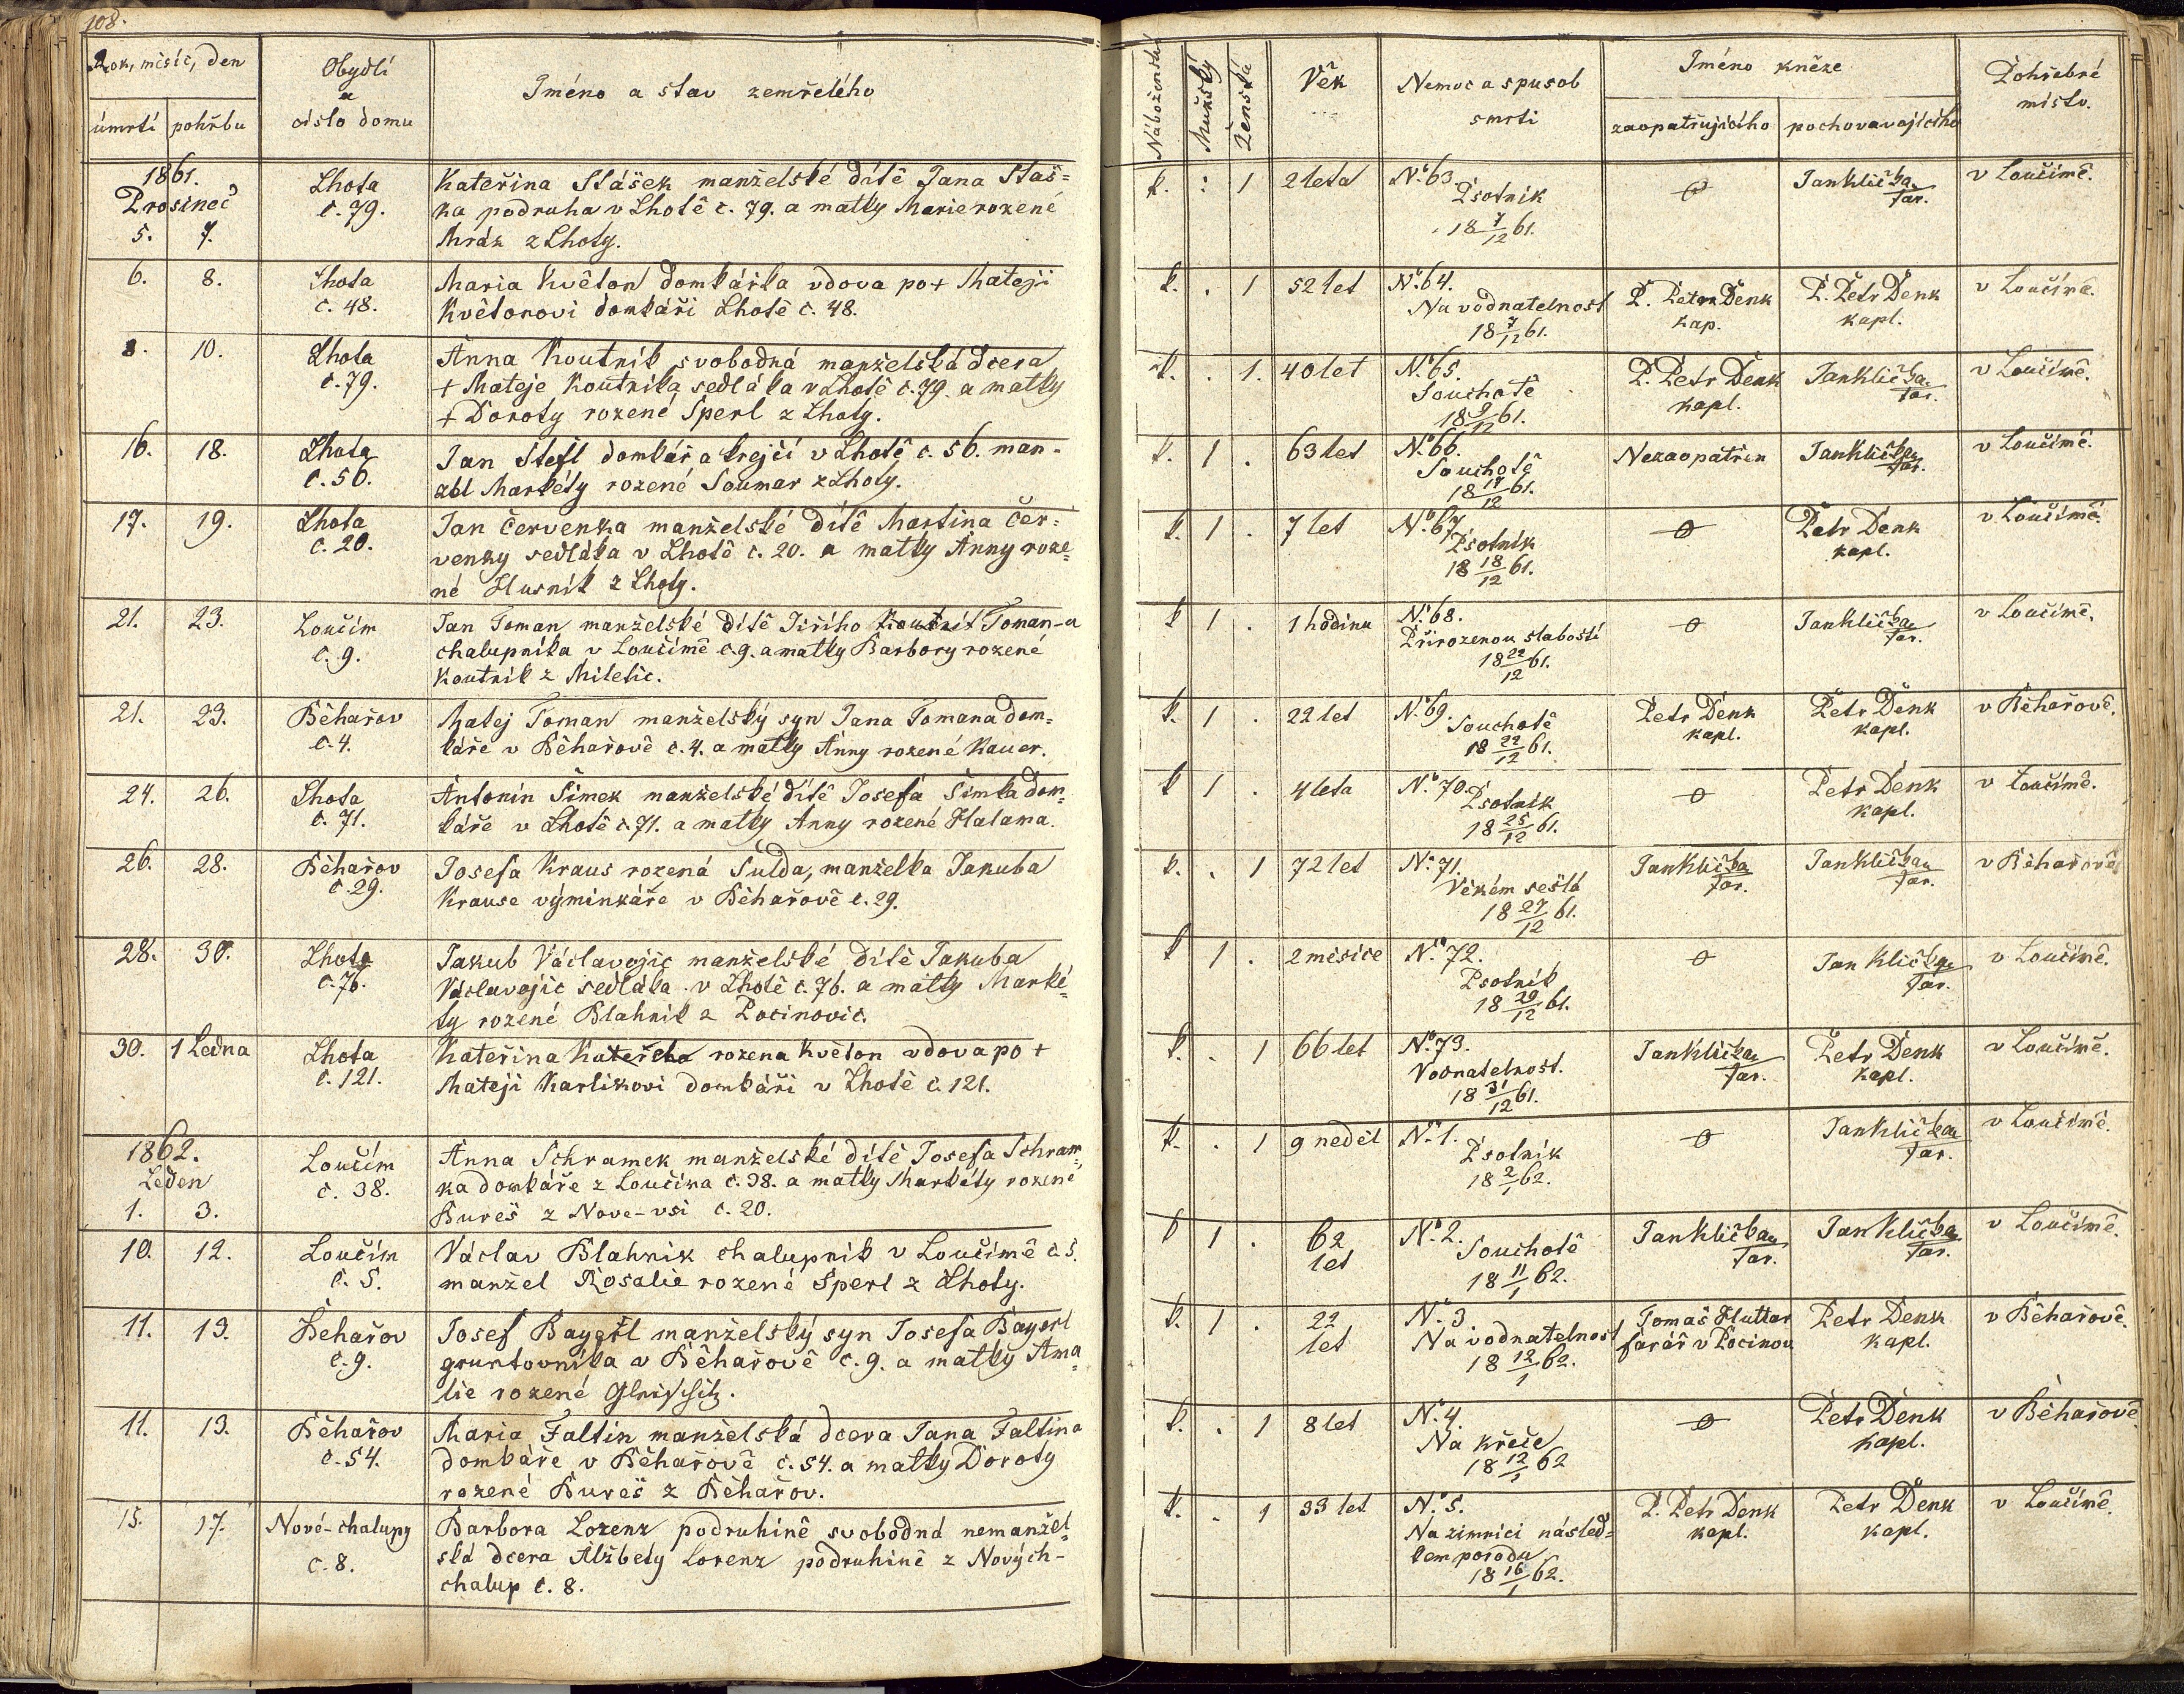 108.
Rok, měsíc, den
úmrtí pohřbu
Obydlí
a
číslo domu
Jméno a stav zemřelého
Náboženství
Mužský
Ženská
Věk
Nemoc a spusob
smrti
Jméno kněze
zaopatřujícího pochovavajícího
Pohřebné
místo.
1861.
Prosinec
5. 7.
Lhota
č. 79.
Kateřina Stášek manželské dítě Jana Staš=
ka podruha v Lhotě č. 79. a matky Marie rozené
Mráz z Lhoty.
k. . 1 2 leta
No. 63.
Psotník
18 7/12 61.
Jan Klička
far.
v Loučimě.
6. 8.
Lhota
č. 48.
Maria Květon domkářka vdova po + Mateji
Květonovi domkáři Lhotě č. 48.
k. . 1 52 let
No. 64.
Na vodnatelnost
18 7/12 61.
P. Petr Denk
kap.
P. Petr Denk
kapl.
v Loučimě.
8. 10.
Lhota
č. 79.
Anna Koutnik svobodná manželská dcera
+ Mateje Koutnika sedláka v Lhotě č. 79. a matky
+ Doroty rozené Šperl z Lhoty.
k. . 1. 40 let
No. 65.
Souchotě
18 9/12 61.
P. Petr Denk
kapl.
Jan Klička
far.
v Loučimě.
16. 18.
Lhota
č. 56.
Jan Štefl domkář a krejčí v Lhotě č. 56. man-
žel Markéty rozené Soumar z Lhoty.
k. 1 . 63 let
No. 66.
Souchotě
18 17/12 61.
Nezaopatřen
Jan Klička
far.
v Loučimě.
17. 19.
Lhota
č. 20.
Jan Červenka manželské dítě Martina Čer=
venky sedláka v Lhotě č. 20. a matky Anny roze=
né Husnik z Lhoty.
k. 1 . 7 let
No. 67.
Psotník
18 18/12 61.
Petr Denk
kapl.
v Loučimě.
21. 23.
Loučim
č. 9.
Jan Toman manželské dítě Jiřího Koutnik Toman-a
chalupníka v Loučimě č. 9. a matky Barbory rozené
Koutnik z Miletic.
k 1 . 1 hodinu
No. 68.
Přirozenou slabostí
18 22/12 61.
Jan Klička
far.
v Loučimě.
21. 23.
Běhařov
č. 4.
Matej Toman manželský syn Jana Tomana dom=
káře v Běhařově č. 4. a matky Anny rozené Kauer.
k. 1 . 22 let
No. 69.
Souchotě
18 22/12 61.
Petr Denk
kapl.
Petr Denk
kapl.
v Běhařově.
24. 26.
Lhota
č. 71.
Antonin Šimek manželské dítě Josefa Šimka dom=
káře v Lhotě č. 71. a matky Anny rozené Halama.
k 1 . 4 leta
No. 70.
Psotník
18 25/12 61.
Petr Denk
kapl.
v Loučimě.
26. 28.
Běhařov
č. 29.
Josefa Kraus rozená Šulda, manželka Jakuba
Krause výminkáře v Běhařově č. 29.
k. . 1 72 let
No. 71.
Věkem sešlá
18 27/12 61.
Jan Klička
far.
Jan Klička
far.
v Běhařově
28. 30.
Lhota
č. 76.
Jakub Václavojic manželské dítě Jakuba
Václavojic sedláka v Lhotě č. 76. a matky Marké=
ty rozené Blahnik z Pocinovic.
k 1 . 2 měsice
No. 72.
Psotník
18 29/12 61.
Jan Klička
far.
v Loučimě.
30. 1 Ledna
Lhota
č. 121.
Kateřina rozena Květon vdova po +
Mateji Karlikovi domkáři v Lhotě č. 121.
k. . 1 66 let
No. 73.
Vodnatelnost.
18 31/12 61.
Jan Klička
far.
Petr Denk
kapl.
v Loučimě.
1862.
Leden
1. 3.
Loučim
č. 38.
Anna Schramek manželské dítě Josefa Schram=
ka domkáře z Loučima č. 38. a matky Markéty rozené
Bureš z Nove-vsi č. 20.
k. . 1 9 neděl
No. 1.
Psotník
18 2/1 62.
Jan Klička
far.
v Loučimě.
10. 12.
Loučim
č. 5.
Václav Blahnik chalupník v Loučimě č. 5.
manžel Rosalie rozené Šperl z Lhoty.
k 1 . 62
let
No. 2.
Souchotě
18 11/1 62.
Jan Klička
far.
Jan Klička
far.
v Loučimě.
11. 13.
Běhařov
č. 9.
Josef Bayerl manželský syn Josefa Bayerl
gruntovníka v Běhařově č. 9. a matky Ama=
lie rozené
k. 1 . 22
let
No. 3
Na vodnatelnost
18 12/1 62.
Tomaš Huttar
farář v Pocinov
Petr Denk
kapl.
v Běhařově.
11. 13.
Běhařov
č. 54.
Maria Faltin manželská dcera Jana Faltina
domkáře v Běhařově č. 54. a matky Doroty
rozené Bureš z Běhařov.
k. . 1 8 let
No. 4.
Na křeče
18 12/1 62
Petr Denk
kapl.
v Běhařově
15. 17.
Nové-chalupy
č. 8.
Barbora Lorenz podruhině svobodná nemanžel=
ská dcera Alžběty Lorenz podruhině z Nových-
chalup č. 8.
k. . 1 33 let
No. 5.
Na zimnici násled=
kem porodu
18 16/1 62.
P. Petr Denk
kapl.
Petr Denk
kapl.
v Loučimě.